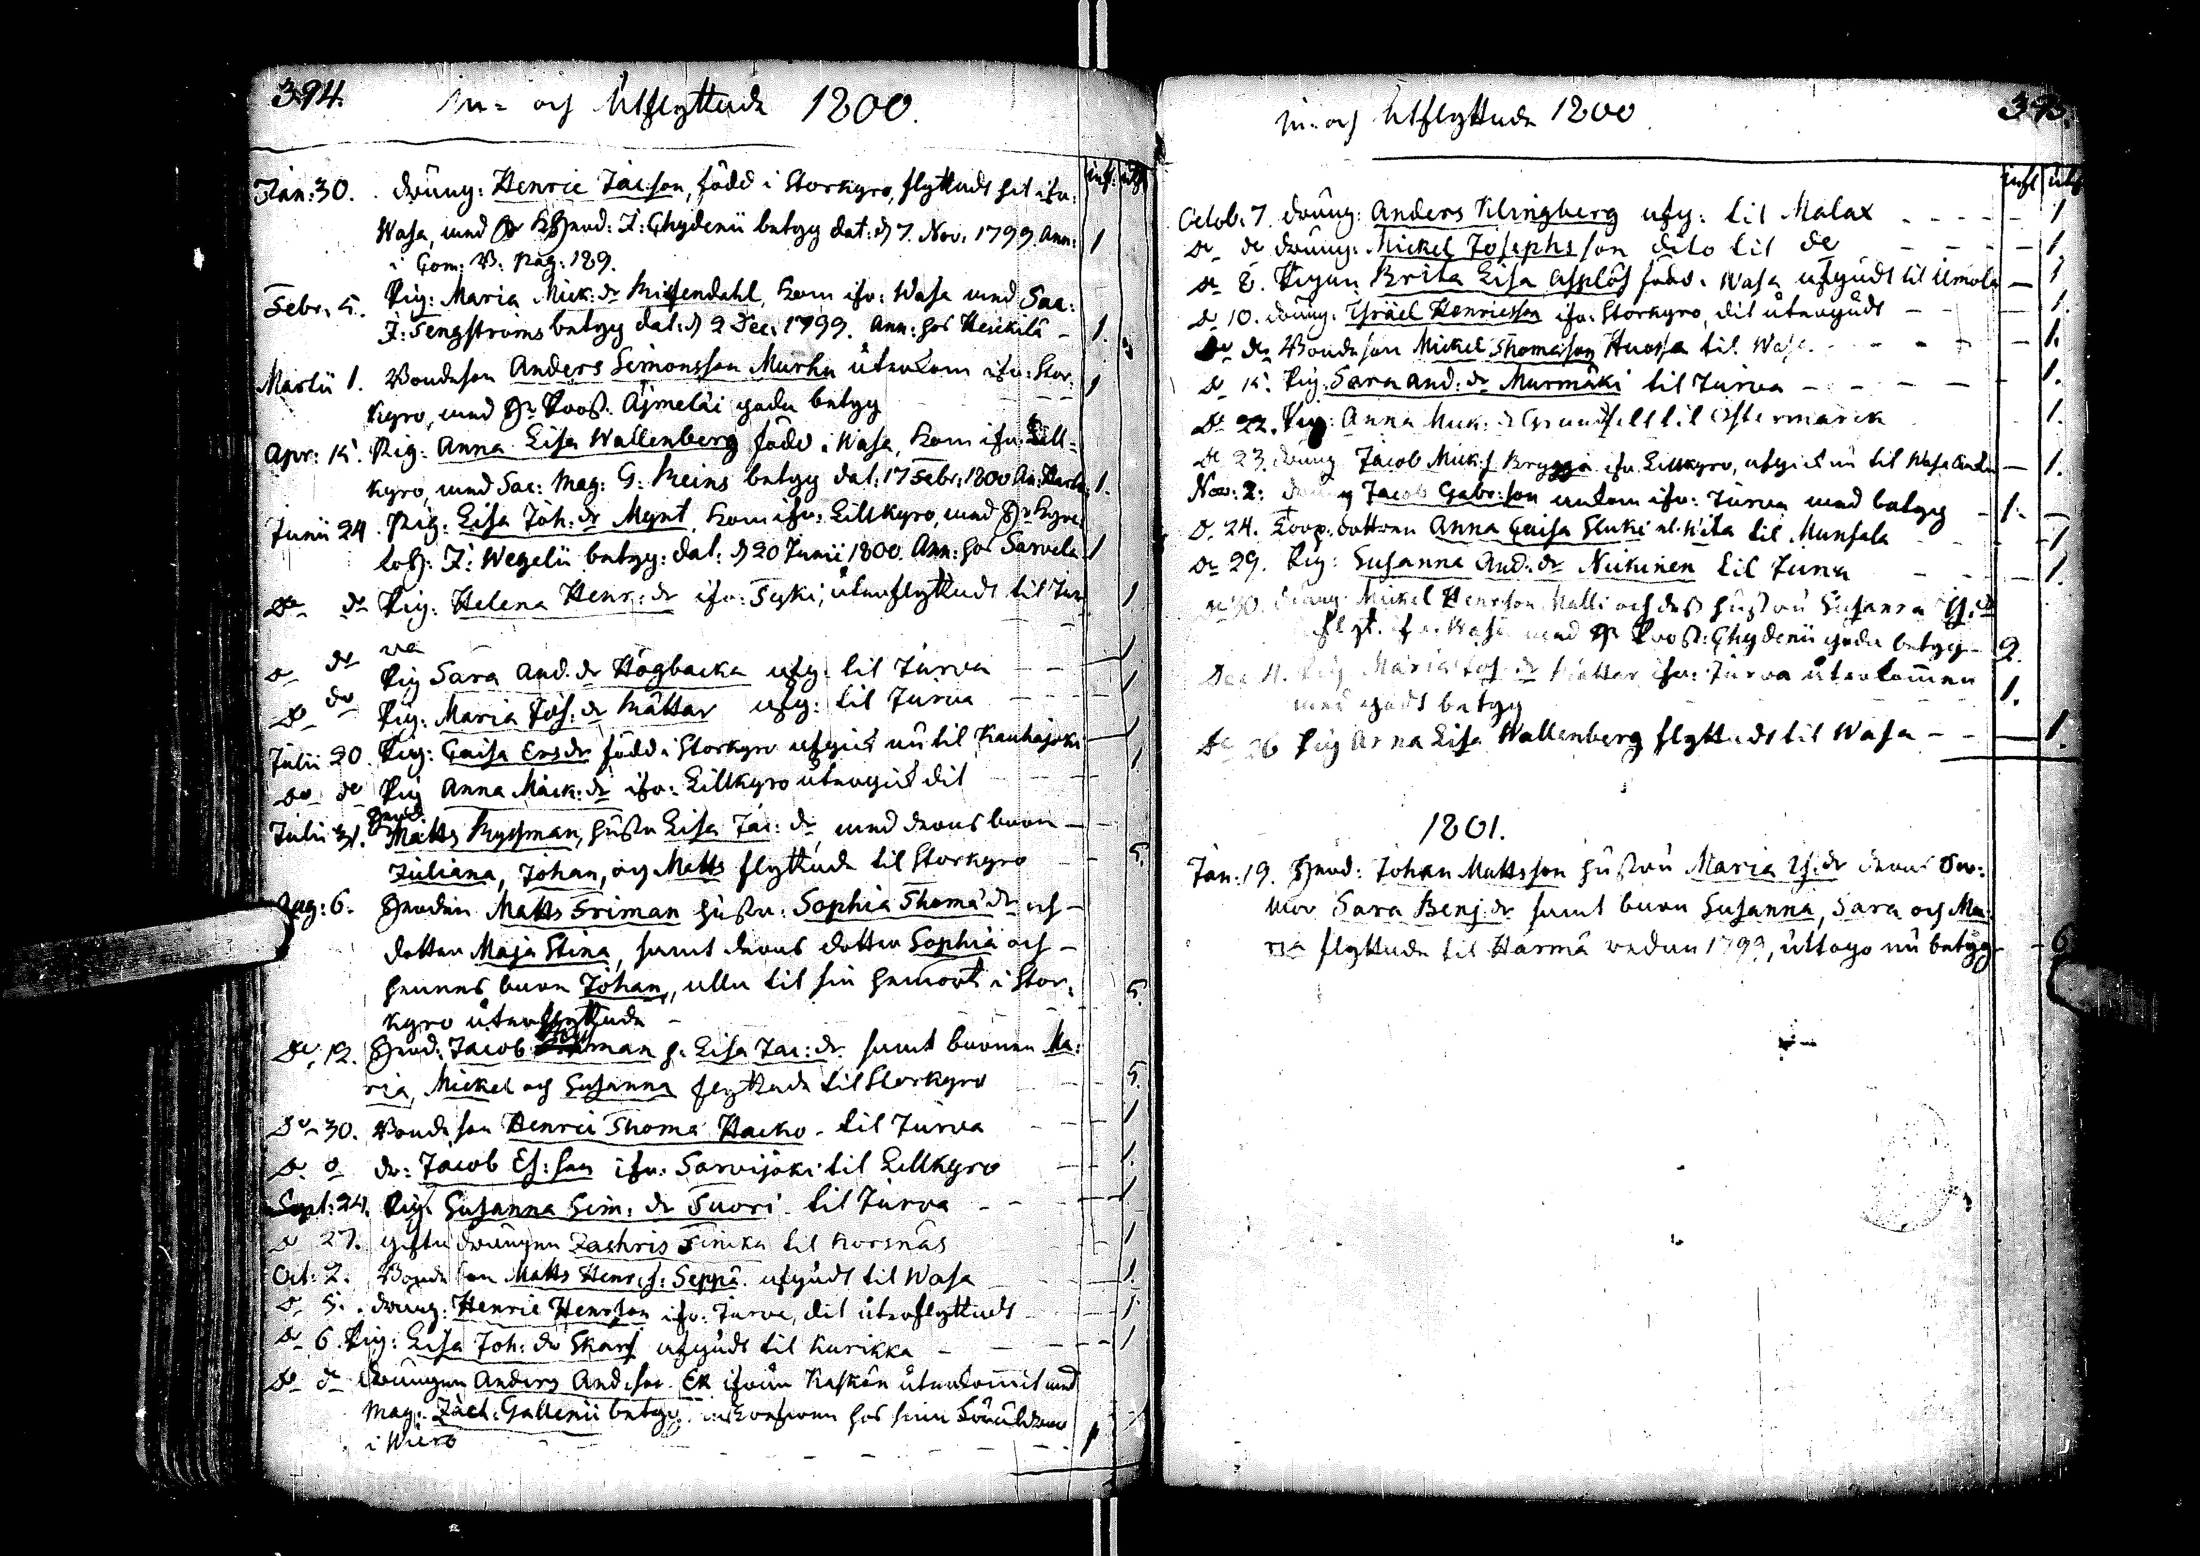 394.
In- och Utflyttade 1800.
infl: utfl
Jan: 30. dräng: Henric Jac:son, född i Storkyro, flyttadt hit ifr:
Wasa, med Hr KHerd: J: Chydenii betyg dat: d 7. Nov: 1799. Ann: 1
i Com: B: pag: 189.
Febr. 5. Pig: Maria Mick:dr kom ifr: Wasa med Sac:
J: Tengströms betyg dat: d 2 Dec: 1799. Ann: hos Heickilä - 1.
Martii 1. Bondeson Anders Simonsson Murha återkom ifr: Stor- 1
kyro, med Hr Proß: Äjmelæi goda betyg
Apr: 15. Pig: Anna Lisa Wallenberg född i Wasa, kom ifr: Lill-
kyro, med Sac: Mag: G: Reins betyg dat: 17 Febr: 1800 An: 1.
Junii 24. Pig: Lisa Joh: dr Mynt kom ifr: Lillkyro, med Hr
J: Wegelii betyg: dat: d 20 Junii 1800. Ann: hos Sarvela 1
Do do Pig: Helena Henr: dr ifr: återflyttadt til Jur- 1.
va
Do do Pig Sara And. dr Högbacka utfl: til Jurva 1.
Do do Pig: Maria Joh: dr Måttar utfl: til Jurva 1
Julii 20. Pig: Caisa Ersdr född i Storkyro utgick nu til Kauhajoki 1
Do do Pig Anna Mick: dr ifr: Lillkyro återgick dit 1.
Julii 31. Herd: Matts Ryssman, hustr Lisa Jac: dr med deras barn
Juliana, Johan, och Matts flyttade til Storkyro 5.
Aug: 6. Herden Matts Friman hustr: Sophia Thoma dr och
dotter Maja Stina, samt deras dotter Sophia och
hennes barn Johan, alla til sin hemort i Stor- 5.
kyro återflyttade
Do 12. Herd: Jacob h. Lisa Jac: dr samt barnen Ma-
ria, Mickel och Susanna flyttade til Storkyro 5.
Do 30. Bondeson Henric Thoma Hacko - til Jurva 1
Do do dr: Jacob Es: son ifr: Sarvijoki til Lillkyro 1.
Sept: 24. Pig: Susanna Sim: dr Tuori til Jurva 1
Do 27. gifta drängen Zachris Finika til Korsnäs 1
Oct: 2. Bondeson Matts Henr. s: Seppä utgådt til Wasa 1.
Do 5. dräng: Henric Henrson ifr: Jurva, dit återflyttadt 1.
Do 6. Pig: Lisa Joh: dr Skarf utgådt til Kurikka 1
Do do Drängen Anders And: son Ek ifrån Kaskön återkommit med
Mag: Zach: Gallenii betyg hos sina Föräldrar
i Wiero 1
In- och Utflyttade 1800
395.
infl utfl
Octob: 7. dräng: Anders Klingberg utfl: til Malax 1
Do do dräng: Mickel Josephsson dito til do 1.
Do 8. Pigan Brita Lisa Asplöf född i Wasa utgådt til Ilmola 1
Do 10. dräng: Israel Henricsson ifr: Storkyro, dit återgådt 1.
Do do Bondeson Mickel Thomasson Huossa til Wasa 1.
Do 15. Pig: Sara And: dr Murmäki til Jurva 1.
Do 22. Pig: Anna Mick: dr Grundfelt til Östermarck 1.
Do 23. dräng Jacob Mick: s Brygga ifr Lillkyro, utgick nu til Wasa 1.
Nov: 2: dräng Jacob Gabr: son ankom ifr: Jurva med betyg 1.
Do 24. dottren Anna Caisa til Munsala 1
Do 29. Pig: Susanna And: dr Niikinen til Jurva 1.
Do 30. dräng Mickel Henrson Malli och dess hustru Susanna
flyt. ifr: Wasa med Hr Proß: Chydenii goda betyg 2.
Dec 11. Pig Maria Joh: dr Måttar ifr: Jurva återkommen
med godt betyg 1.
Do 26 Pig Anna Lisa Wallenberg flyttadt til Wasa 1.
1801.
Jan: 19. Herd: Johan Mattsson hustru Maria dr deras Sw:
mor Sara Benj. dr samt barn Susanna, Sara och Ma-
ria flyttade til Härmä redan 1799, uttogo nu betyg 6